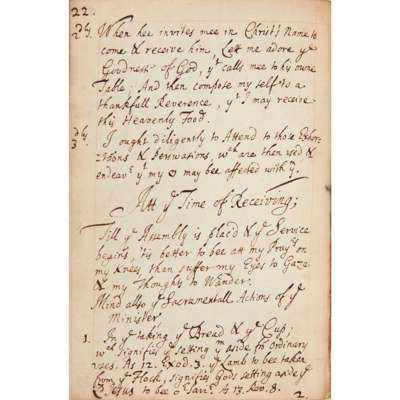 22.
2ly. When hee invites mee in Christ's Name to
come & receive him, Lett me adore ye
Goodness of God, yt calls mee to his owne
Table; And then compose my self to a
thankfull Reverence, yt I may receive
this Heavenly Food.
3ly I ought diligently to Attend to those Exhor-
tations & Perswations, wch are then used &
endeavr yt my may bee affected with ym.
Att ye Time of Receiving;
Till ye Assembly is plac'd & ye Service
begins, 'tis better to bee att my Prayrs on
my Knees, than suffer my Eyes to Gaze
& my Thoughts to Wander.
Mind also ye Sacramentall Actions of ye
Minister
1. In ye taking ye Bread & ye Cup;
wch signifies ye setting ym aside frō Ordinary
uses. As 12. Exod. 3. ye Lamb to bee taken
from ye Flock, signifies Gods setting aside of
Jesus to bee or Savr. As 13. Rev. 8.
2.